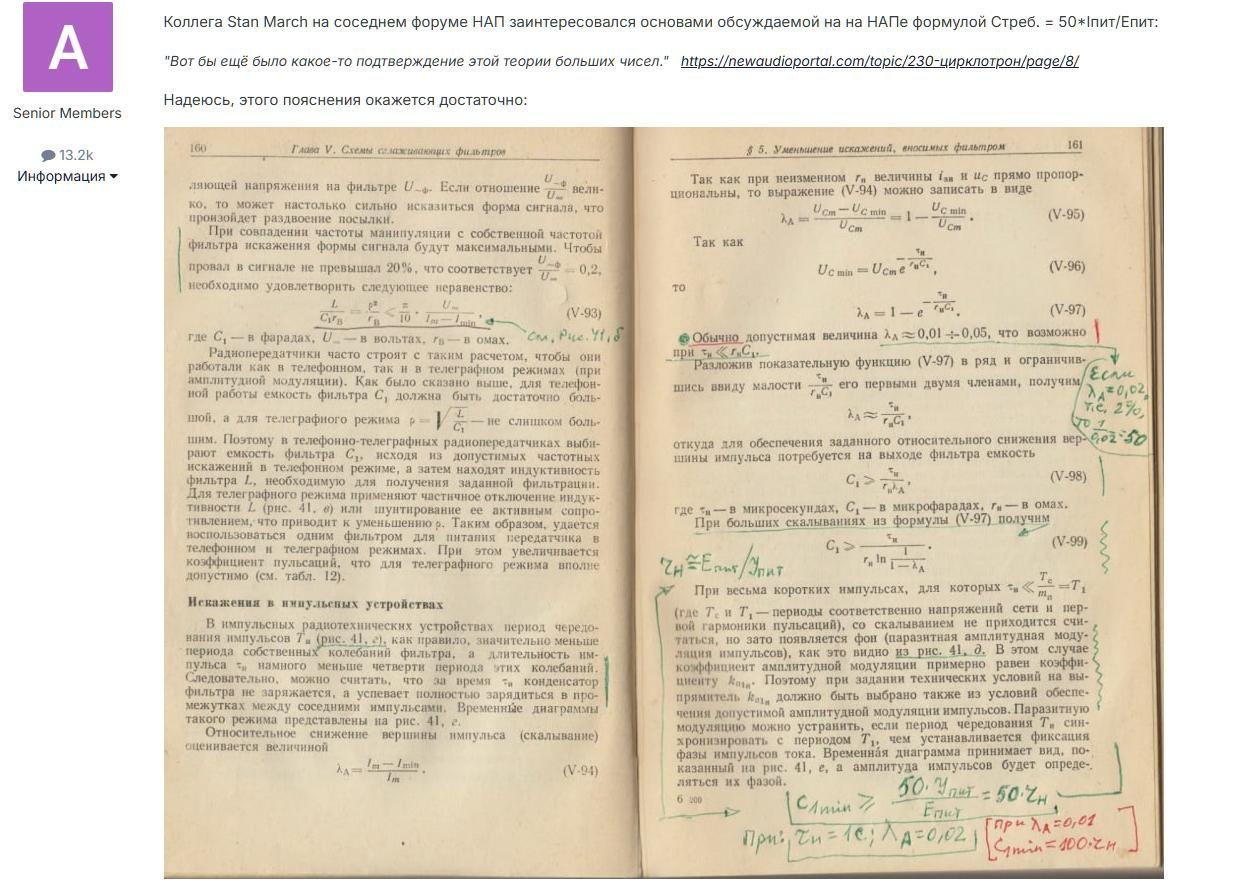 A
Senior Members
13.2k
Информация
Коллега Stan March на соседнем форуме НАП заинтересовался основами обсуждаемой на на НАПе формулой Cтреб. = 50*Iпит/Eпит:
"Вот бы ещё было какое-то подтверждение этой теории больших чисел." https://newaudioportal.com/topic/230-цирклотрон/page/8/
Надеюсь, этого пояснения окажется достаточно:
160 Глава V. Схемы сглаживающих фильтров
ляющей напряжения на фильтре U~ф. Если отношение U~ф/U= вели-
ко, то может настолько сильно исказиться форма сигнала, что
произойдет раздвоение посылки.
При совпадении частоты манипуляции с собственной частотой
фильтра искажения формы сигнала будут максимальными. Чтобы
провал в сигнале не превышал 20%, что соответствует U~ф/U= = 0,2,
необходимо удовлетворить следующее неравенство:
L/C₁rв = ρ²/rв < π/10 · U=/Im—Imin, (V-93)
См. Рис. 41, б
где C₁ — в фарадах, U= — в вольтах, rв — в омах.
Радиопередатчики часто строят с таким расчетом, чтобы они
работали как в телефонном, так и в телеграфном режимах (при
амплитудной модуляции). Как было сказано выше, для телефон-
ной работы емкость фильтра C₁ должна быть достаточно боль-
шой, а для телеграфного режима ρ = √L/C₁ — не слишком боль-
шим. Поэтому в телефонно-телеграфных радиопередатчиках выби-
рают емкость фильтра C₁, исходя из допустимых частотных
искажений в телефонном режиме, а затем находят индуктивность
фильтра L, необходимую для получения заданной фильтрации.
Для телеграфного режима применяют частичное отключение индук-
тивности L (рис. 41, в) или шунтирование ее активным сопро-
тивлением, что приводит к уменьшению ρ. Таким образом, удается
воспользоваться одним фильтром для питания передатчика в
телефонном и телеграфном режимах. При этом увеличивается
коэффициент пульсаций, что для телеграфного режима вполне
допустимо (см. табл. 12).
Искажения в импульсных устройствах
В импульсных радиотехнических устройствах период чередо-
вания импульсов Tи (рис. 41, г), как правило, значительно меньше
периода собственных колебаний фильтра, а длительность им-
пульса τи намного меньше четверти периода этих колебаний.
Следовательно, можно считать, что за время τи конденсатор
фильтра не заряжается, а успевает полностью зарядиться в про-
межутках между соседними импульсами. Временные диаграммы
такого режима представлены на рис. 41, г.
Относительное снижение вершины импульса (скалывание)
оценивается величиной
λА = Im — Imin/Im. (V-94)
§ 5. Уменьшение искажений, вносимых фильтром 161
Так как при неизменном rн величины iан и uC прямо пропор-
циональны, то выражение (V-94) можно записать в виде
λА = UCm — UC min/UCm = 1 — UC min/UCm. (V-95)
Так как
UC min = UCm e^(−τи/rнC₁), (V-96)
то
λА = 1 — e^(−τи/rнC₁). (V-97)
Обычно допустимая величина λА ≈ 0,01 ÷ 0,05, что возможно
при τи ≪ rнC₁.
Разложив показательную функцию (V-97) в ряд и ограничив-
шись ввиду малости τи/rнC₁ его первыми двумя членами, получим
Если
λА = 0,02,
т.е. 2%,
то 1/0,02 = 50
λА ≈ τи/rнC₁,
откуда для обеспечения заданного относительного снижения вер-
шины импульса потребуется на выходе фильтра емкость
C₁ > τи/rнλА, (V-98)
где τи — в микросекундах, C₁ — в микрофарадах, rн — в омах.
При больших скалываниях из формулы (V-97) получим
C₁ > τи/rн ln 1/1 — λА. (V-99)
rн ≅ Eпит/Iпит
При весьма коротких импульсах, для которых τи ≪ Tс/mп = T₁
(где Tс и T₁ — периоды соответственно напряжений сети и пер-
вой гармоники пульсаций), со скалыванием не приходится счи-
таться, но зато появляется фон (паразитная амплитудная моду-
ляция импульсов), как это видно из рис. 41, д. В этом случае
коэффициент амплитудной модуляции примерно равен коэффи-
циенту kп1н. Поэтому при задании технических условий на вы-
прямитель kп1н должно быть выбрано также из условий обеспе-
чения допустимой амплитудной модуляции импульсов. Паразитную
модуляцию можно устранить, если период чередования Tи син-
хронизировать с периодом T₁, чем устанавливается фиксация
фазы импульсов тока. Временная диаграмма принимает вид, по-
казанный на рис. 41, е, а амплитуда импульсов будет опреде-
ляться их фазой.
6 200
C1min ≥ 50·Iпит/Eпит = 50·rн
При: τи = 1с; λА = 0,02
при λА = 0,01
C1min = 100·rн